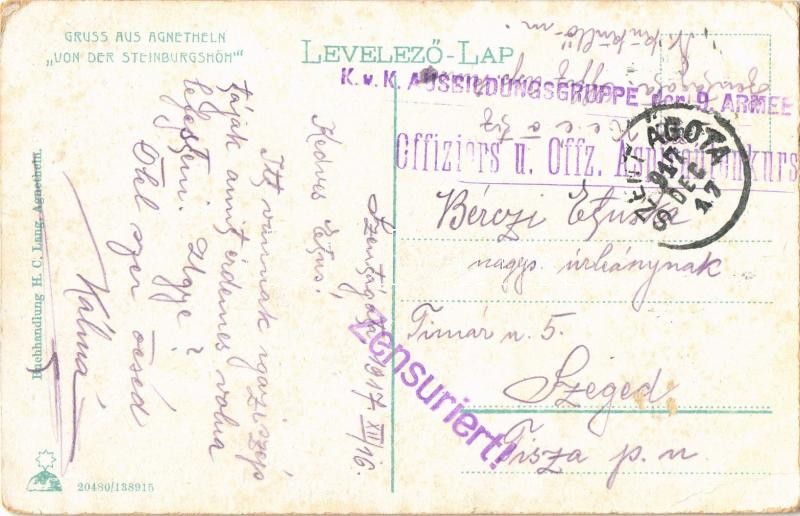 GRUSS AUS AGNETHELN
„VON DER STEINBURGSHÖH“
LEVELEZŐ-LAP
K. u. K. AUSBILDUNGSGRUPPE der 9. ARMEE
Offiziers u. Offz. Aspirantenkurs
SZENT ÁGOTA
917 DEC 17
Szentágota, 1917 XII/16.
Kedves Etus!
Itt vannak igazi szép
tájak amit érdemes volna
lefesteni. Ugye?
Ölel szer öcséd
Kálmá
Bérczi Etuska
nagys. úrleánynak
Timár u. 5.
Szeged
Tisza p. u.
Zensuriert!
Buchhandlung H. C. Lang, Agnetheln.
20480/138915